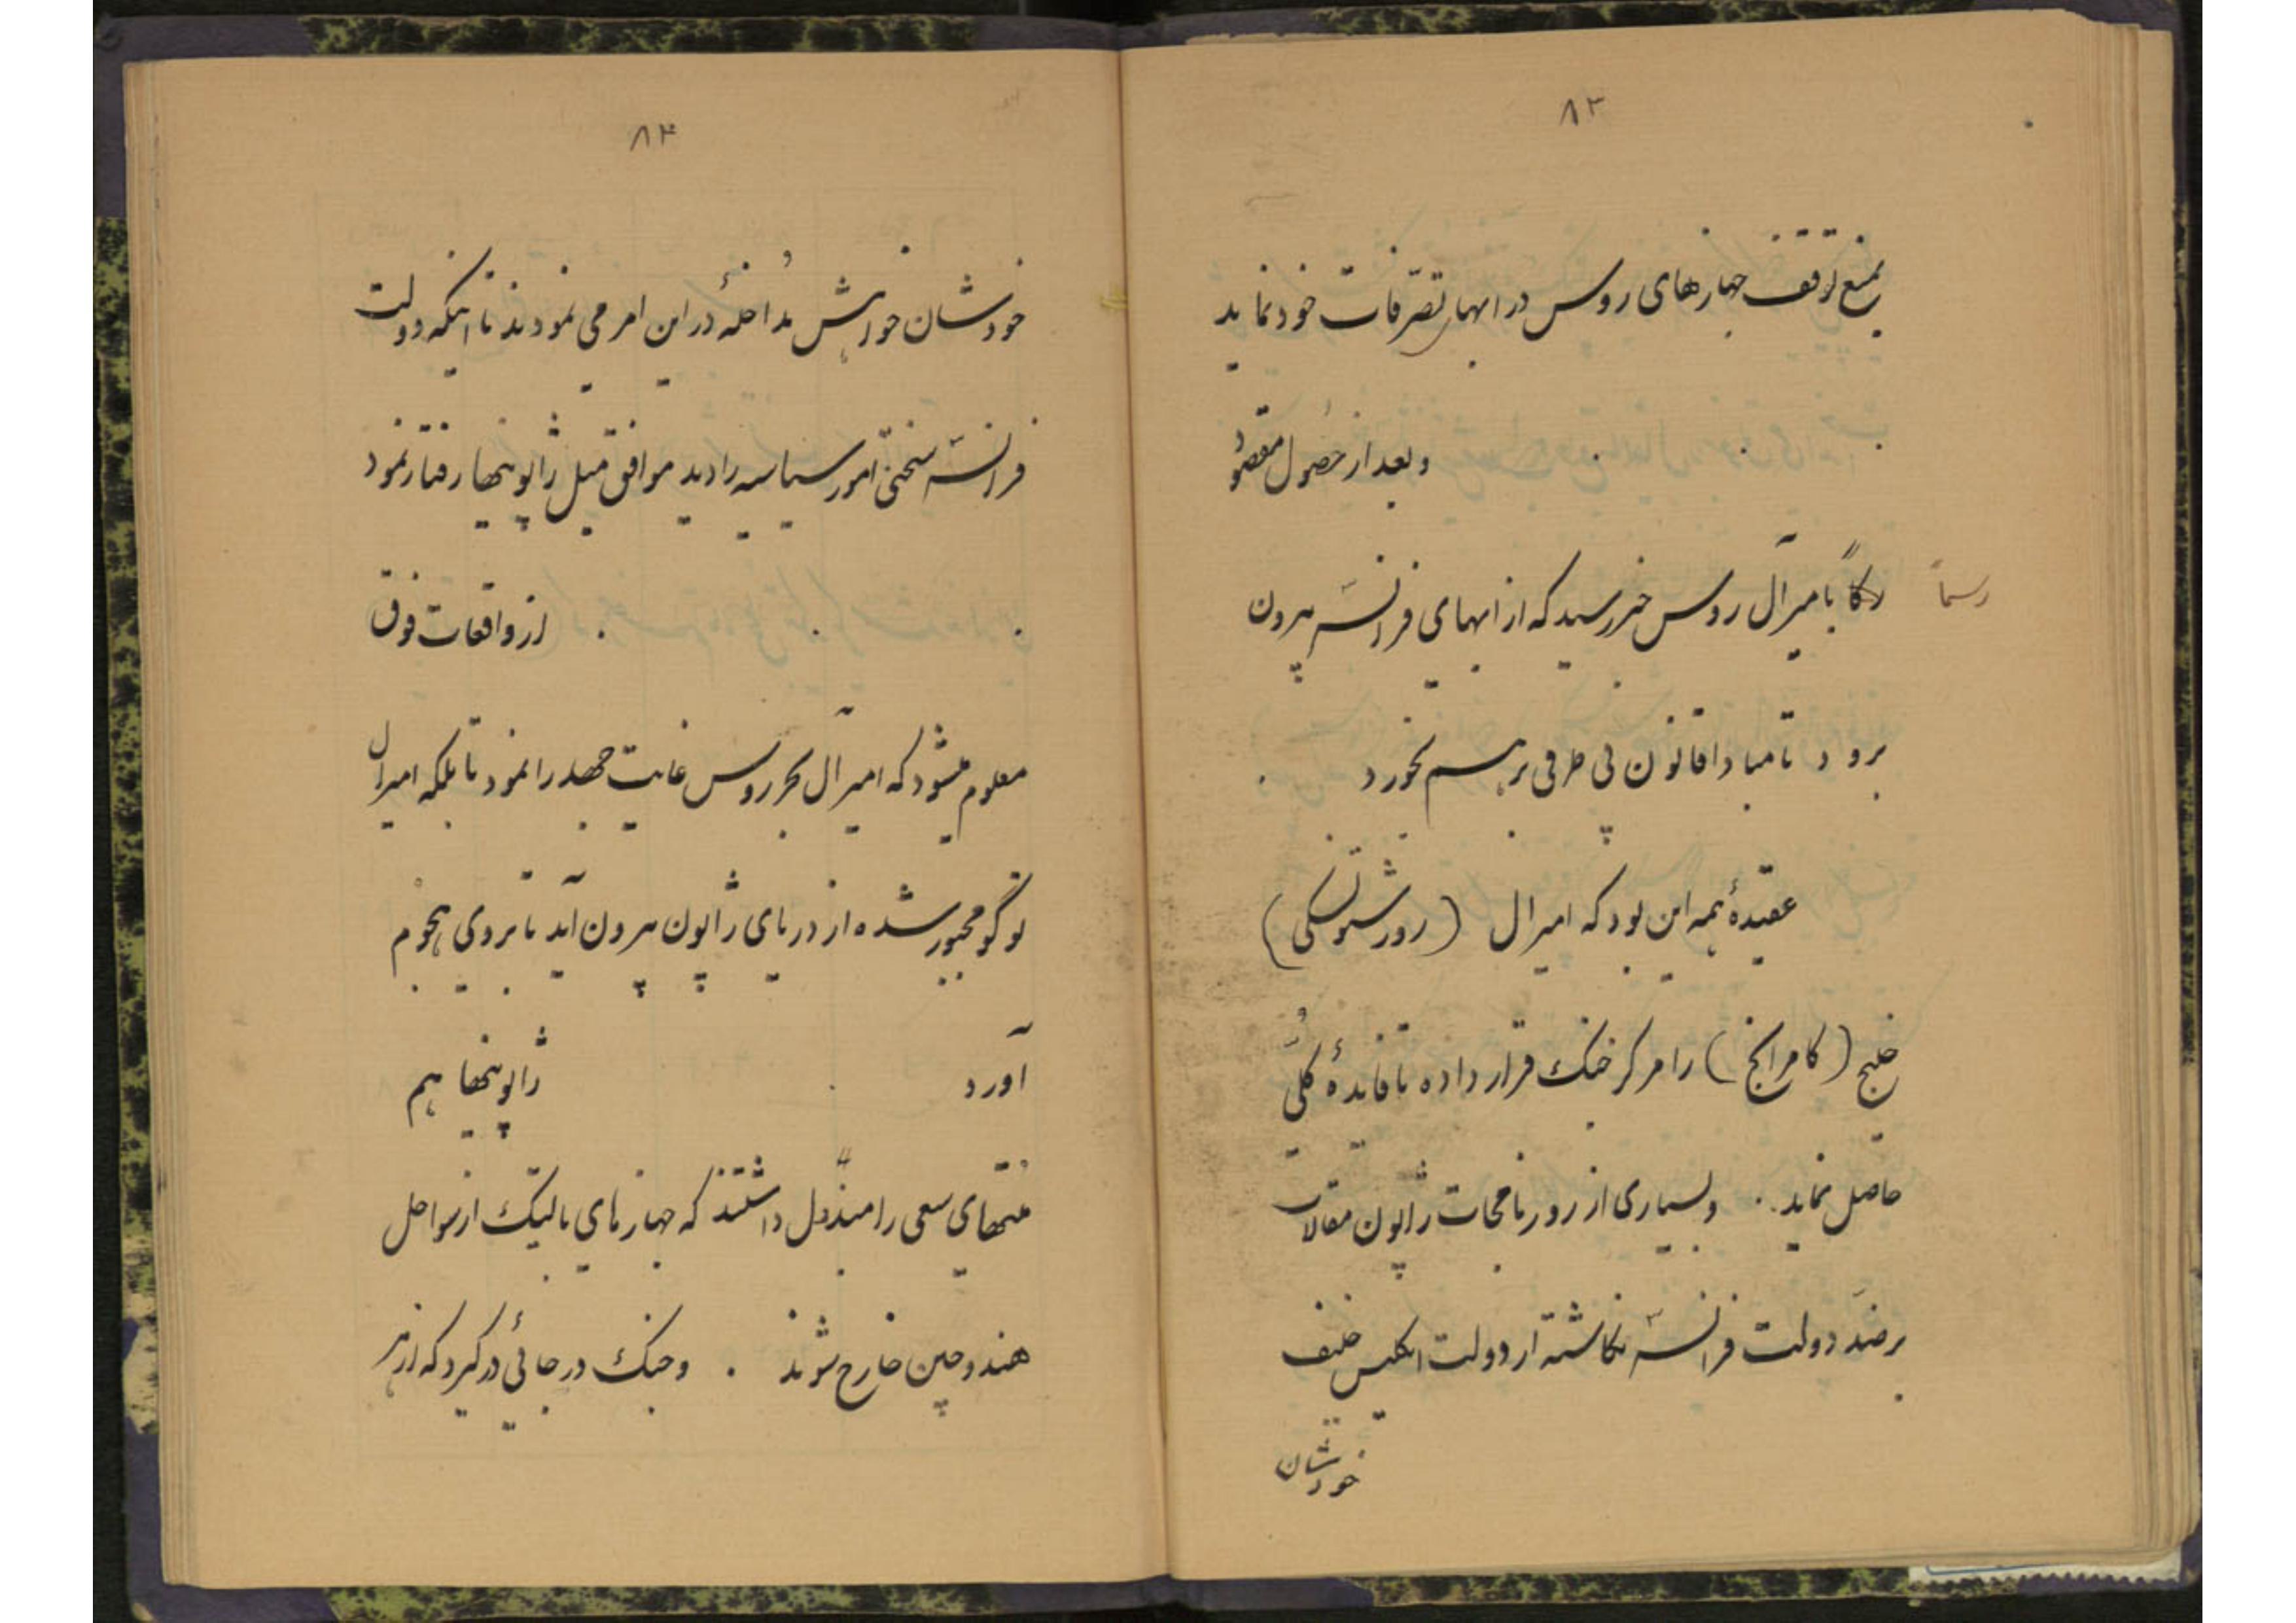 ۸۳
بمنع توقف جهازهای روس در ابهای تصرّفات خود نماید
وبعد از حُصول مقصوُد
رسماً
باميرآل روس خبر رسید که از ابهای فرانسّه بیرون
برود تا مبادا قانون بی طرفی برهم بخورد .
عقیدهٔ همه این بود که امیرال (روژستونسکی)
خلیج (کامرانخ) را مرکز جنگ قرار داده تا فایدهٔ کلّی
حاصل نماید . وبسیاری از روزنامجات ژاپون مقالات
برضّد دولت فرانسّه نگاشته از دولت انگلیس حلیف
خودشان
۸۴
خودشان خواهش مُداخلهٔ در این امر می نمودند تا اینکه دولت
فرانسّه سختیّ امور سیاسیه را دید موافق میل ژاپونیها رفتار نمود
. . . از واقعات فوق
معلوم میشود که امیرآل بحر روس غایت جهد را نمود تا بلکه امیرال
توگو مجبور شده از دریای ژاپون بیرون آید تا بروی هجوم
آورد . ژاپونیها هم
مُنتهای سعی را مبذول داشتند که جهازهای بالتیک از سواحل
هندوچین خارج شوند . وجنگ در جائی درگیرد که از هر